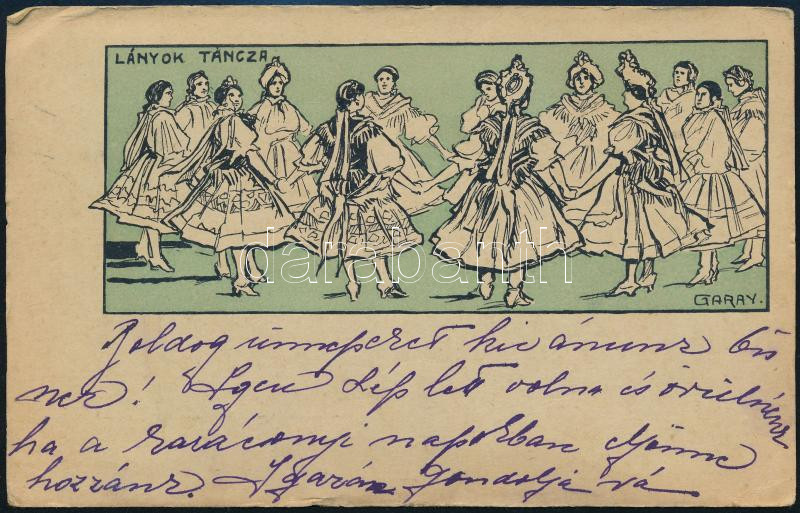 LÁNYOK TÁNCZA
GARAY.
darabanth
Boldog ünnepeket kivánunk
! Igen szép lett volna és örülnénk
ha a karácsonyi napokban eljönne
hozzánk. Igazán gondolja